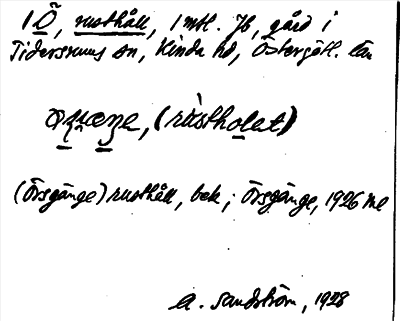 1 Ö, rusthåll, 1 mtl. Jb, gård i
Tidersrums sn, Kinda hd, Östergötl. län
(rùstholet)
(Örsgänge) rusthåll, bek; Örsgänge, 1926 me
A. Sandström, 1928